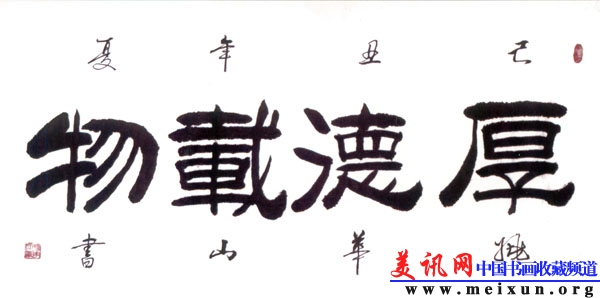 己丑年夏
厚德載物
華山書
美讯网 中国书画收藏频道
www.meixun.org